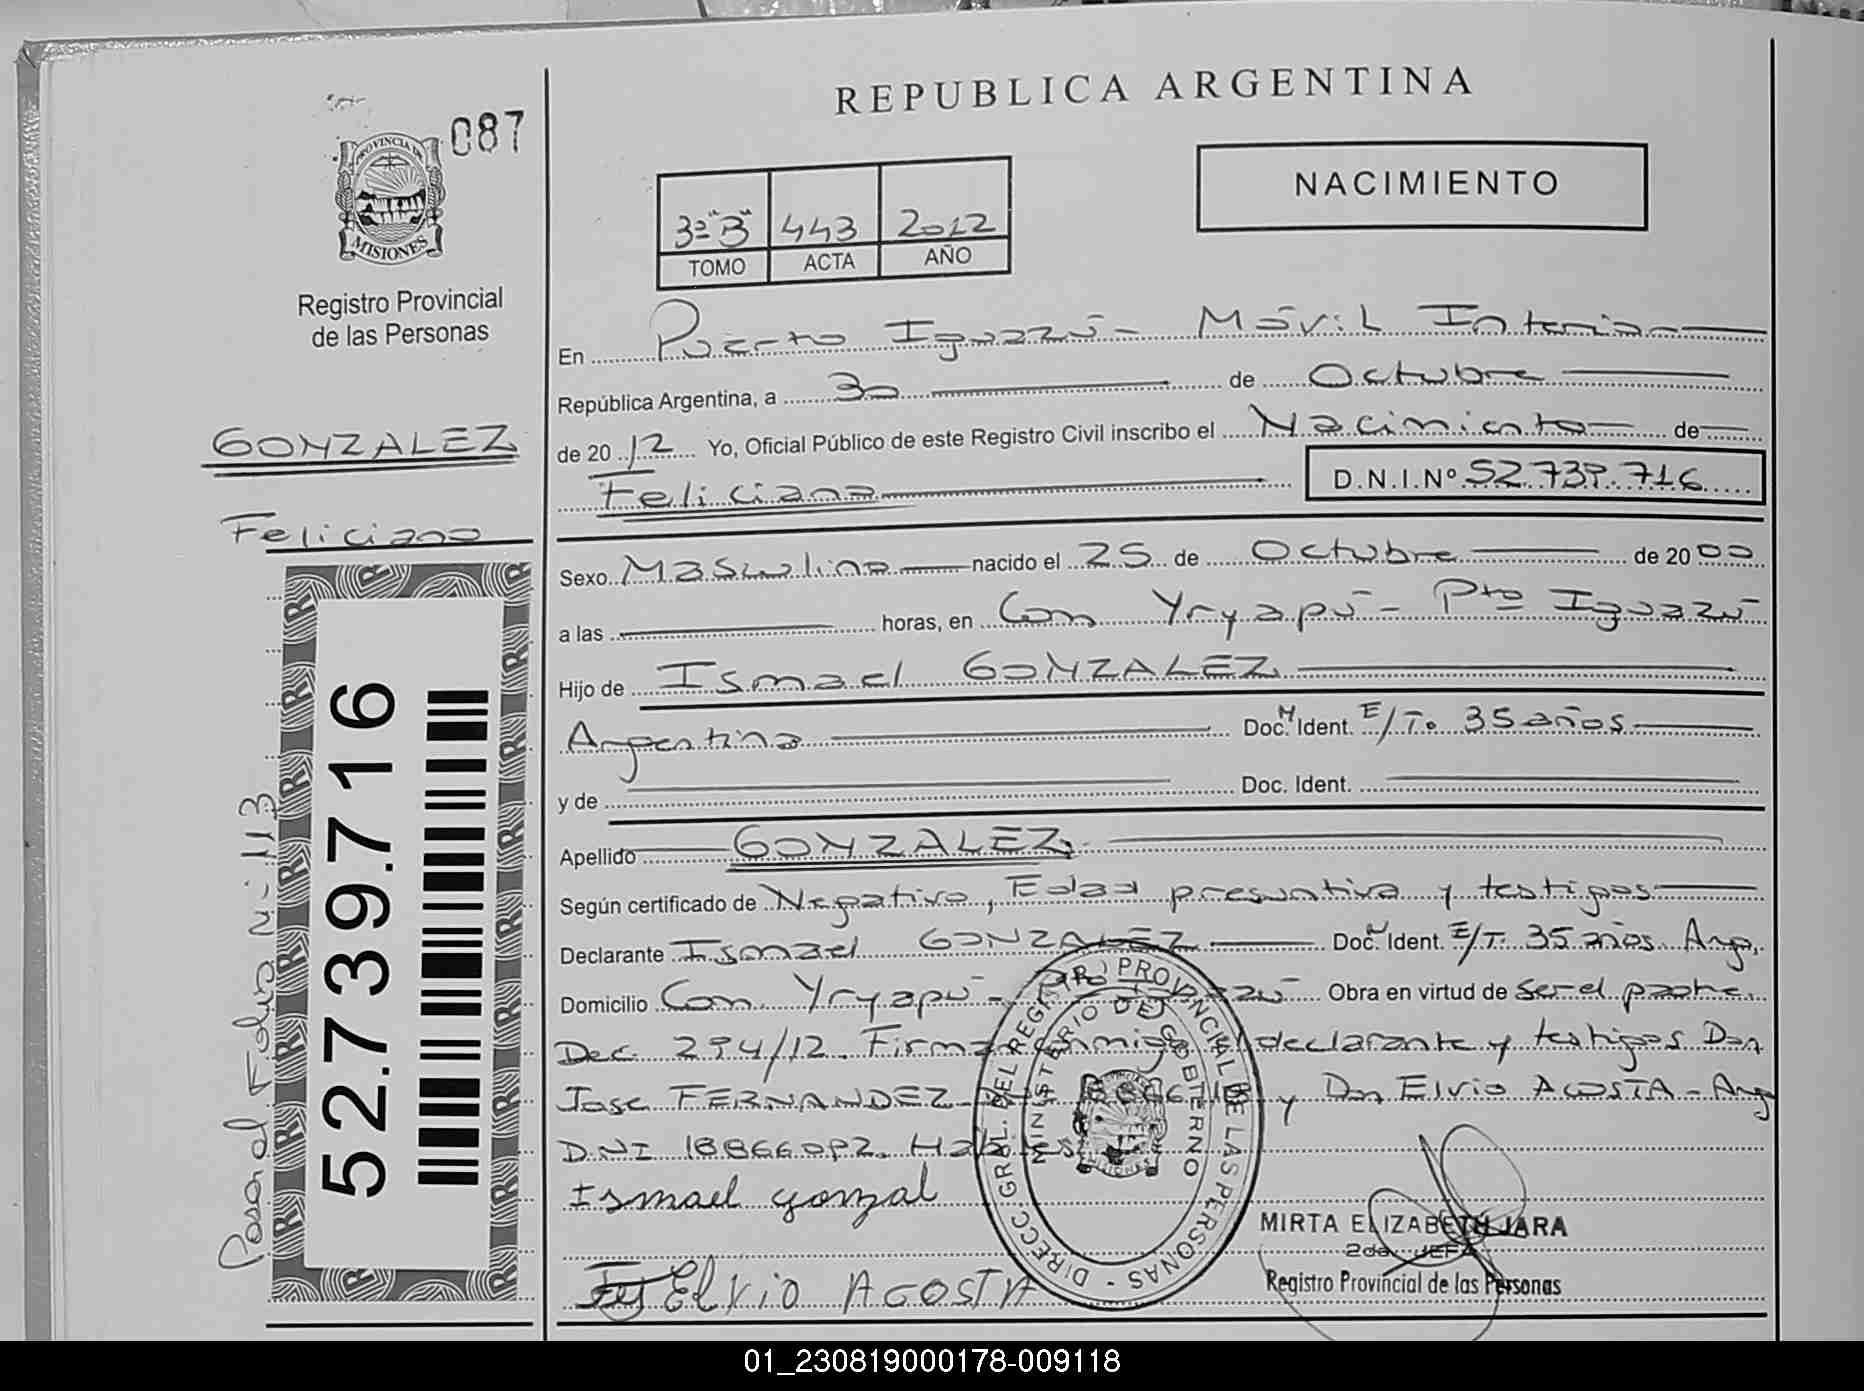 087
PROVINCIA DE
MISIONES
Registro Provincial
de las Personas
GONZALEZ
Feliciano
52.739.716
Pasa al Folio Nº 113
REPUBLICA ARGENTINA
NACIMIENTO
3º "B" 443 2012
TOMO ACTA AÑO
En Puerto Iguazú - Móvil Interior
República Argentina, a 30 de Octubre
de 2012 Yo, Oficial Público de este Registro Civil inscribo el Nacimiento de
Feliciano D.N.I.Nº 52.739.716
Sexo Masculino nacido el 25 de Octubre de 2000
a las horas, en Com Yryapú - Pto Iguazú
Hijo de Ismael GONZALEZ
Argentino Doc. N Ident. E/T. 35 años
y de Doc. Ident.
Apellido GONZALEZ
Según certificado de Negativo, Edad presuntiva y testigos
Declarante Ismael GONZALEZ Doc. N Ident. E/T. 35 años Arg.
Domicilio Com. Yryapú - Pto Iguazú Obra en virtud de ser el padre.
Dec. 294/12. Firman conmigo declarante y testigos Don
Jose FERNANDEZ y Don Elvio ACOSTA - Arg
DNI 18866092.
Ismael gonzal
Elvio ACOSTA
DIRECC. GRAL. DEL REGISTRO PROVINCIAL DE LAS PERSONAS -
MINISTERIO DE GOBIERNO
MISIONES
MIRTA ELIZABETH JARA
2da. JEFA
Registro Provincial de las Personas
01_230819000178-009118